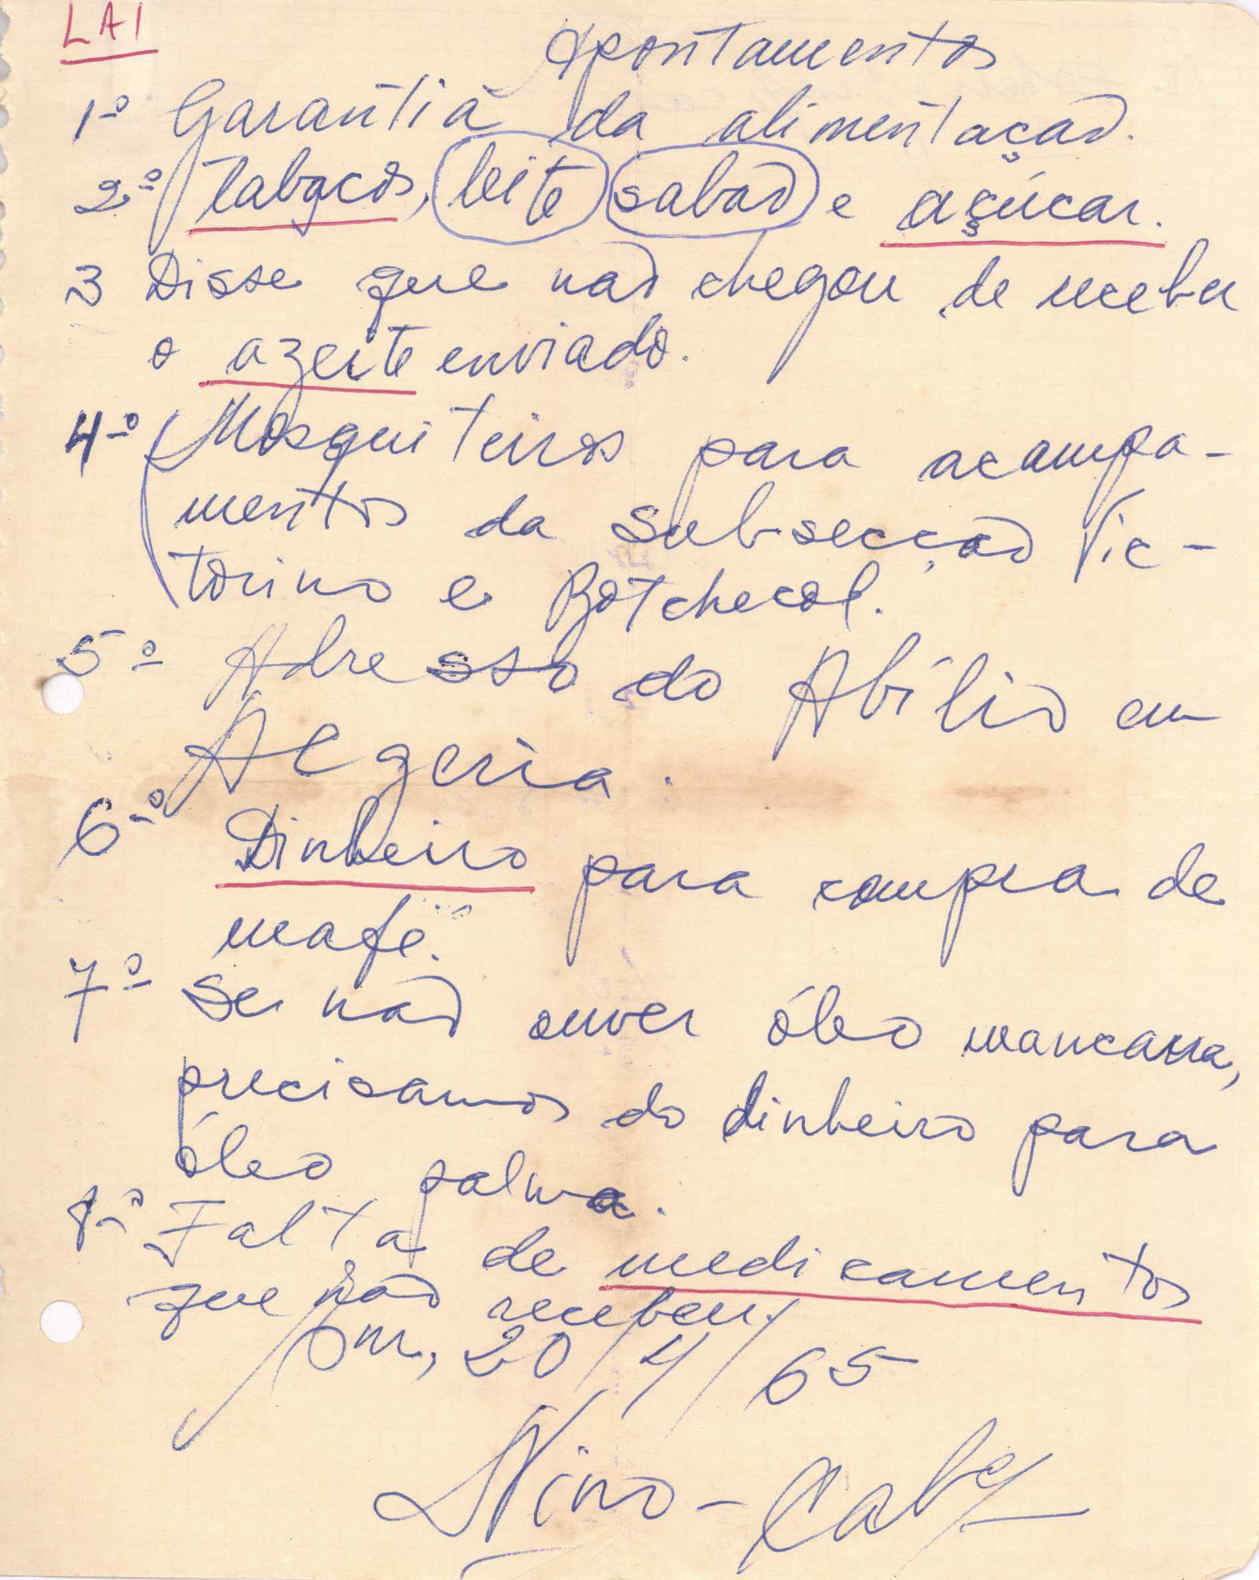 LAI
Apontamentos
1º Garantia da alimentação.
2º Tabacos, leite sabão e açúcar.
3 Disse que não chegou de receber
o azeite enviado.
4º Mosquiteiros para acampa-
mentos da subsecção Vic-
torino e Botchecol.
5º Adresso do Abílio em
Algeria.
6º Dinheiro para compra de
mafé.
7º Se não ouver óleo mancarra,
precisamos do dinheiro para
óleo palma.
8º Falta de medicamentos
que não receben.
20/4/65
Nino-